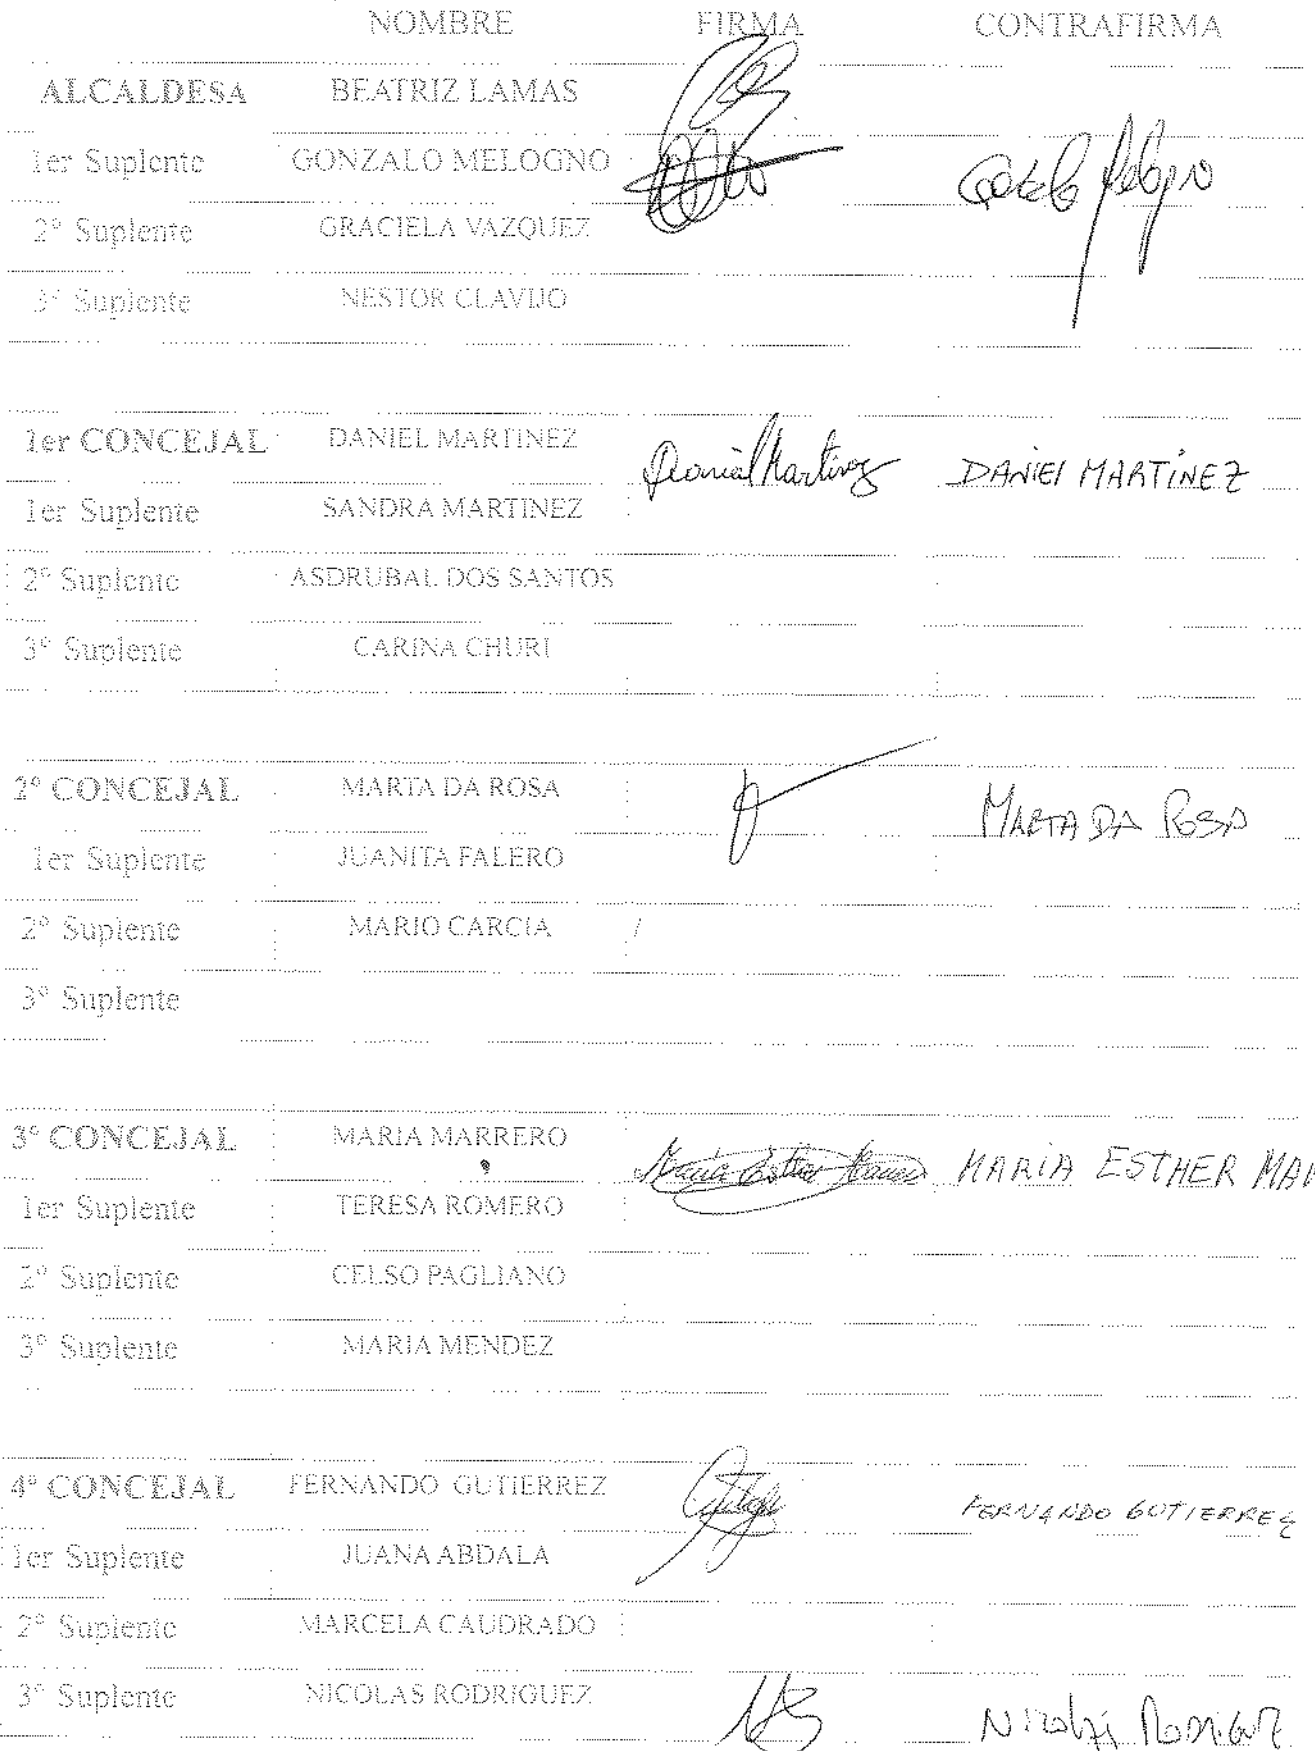 NOMBRE FIRMA CONTRAFIRMA
ALCALDESA BEATRIZ LAMAS
1er Suplente GONZALO MELOGNO
2º Suplente GRACIELA VAZQUEZ
3º Suplente NESTOR CLAVIJO
1er CONCEJAL DANIEL MARTINEZ Daniel Martinez DANIEl MARTÍNEZ
1er Suplente SANDRA MARTINEZ
2º Suplente ASDRUBAL DOS SANTOS
3º Suplente CARINA CHURI
2º CONCEJAL MARTA DA ROSA MARTA DA ROSA
1er Suplente JUANITA FALERO
2º Suplente MARIO CARCIA /
3º Suplente
3º CONCEJAL MARIA MARRERO María Esther MARÍA ESTHER
1er Suplente TERESA ROMERO
2º Suplente CELSO PAGLIANO
3º Suplente MARIA MENDEZ
4º CONCEJAL FERNANDO GUTIERREZ FERNANDO GUTIERREZ
1er Suplente JUANA ABDALA
2º Suplente MARCELA CAUDRADO
3º Suplente NICOLAS RODRIGUEZ